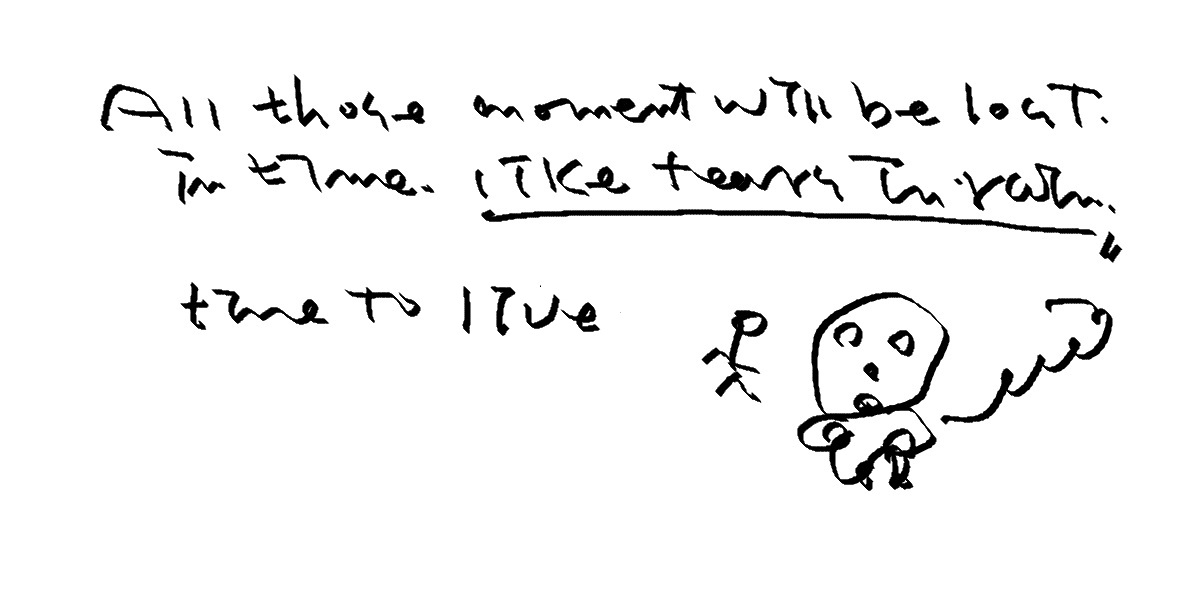 All those moment will be lost.
in time. like tears in rain."
time to live